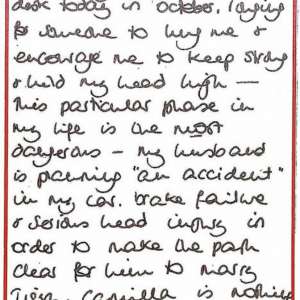 desk today in October, longing
for someone to hug me &
encourage me to keep strong
& hold my head high —
This particular phase in
my life is the most
dangerous – my husband
is planning "an accident"
in my car. brake failure
& serious head injury in
order to make the path
clear for him to marry
Camilla is nothing